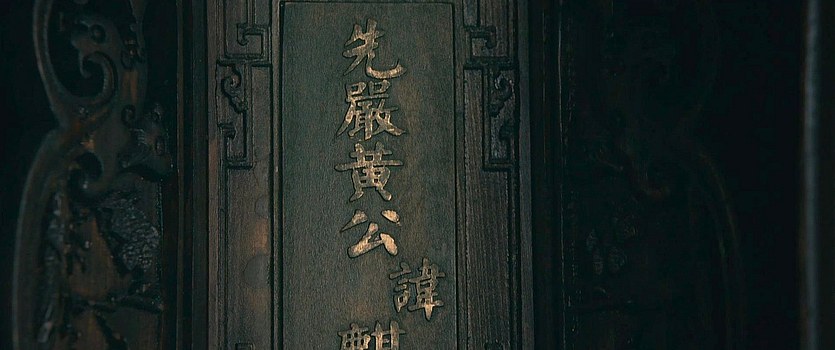 先嚴黃公
諱